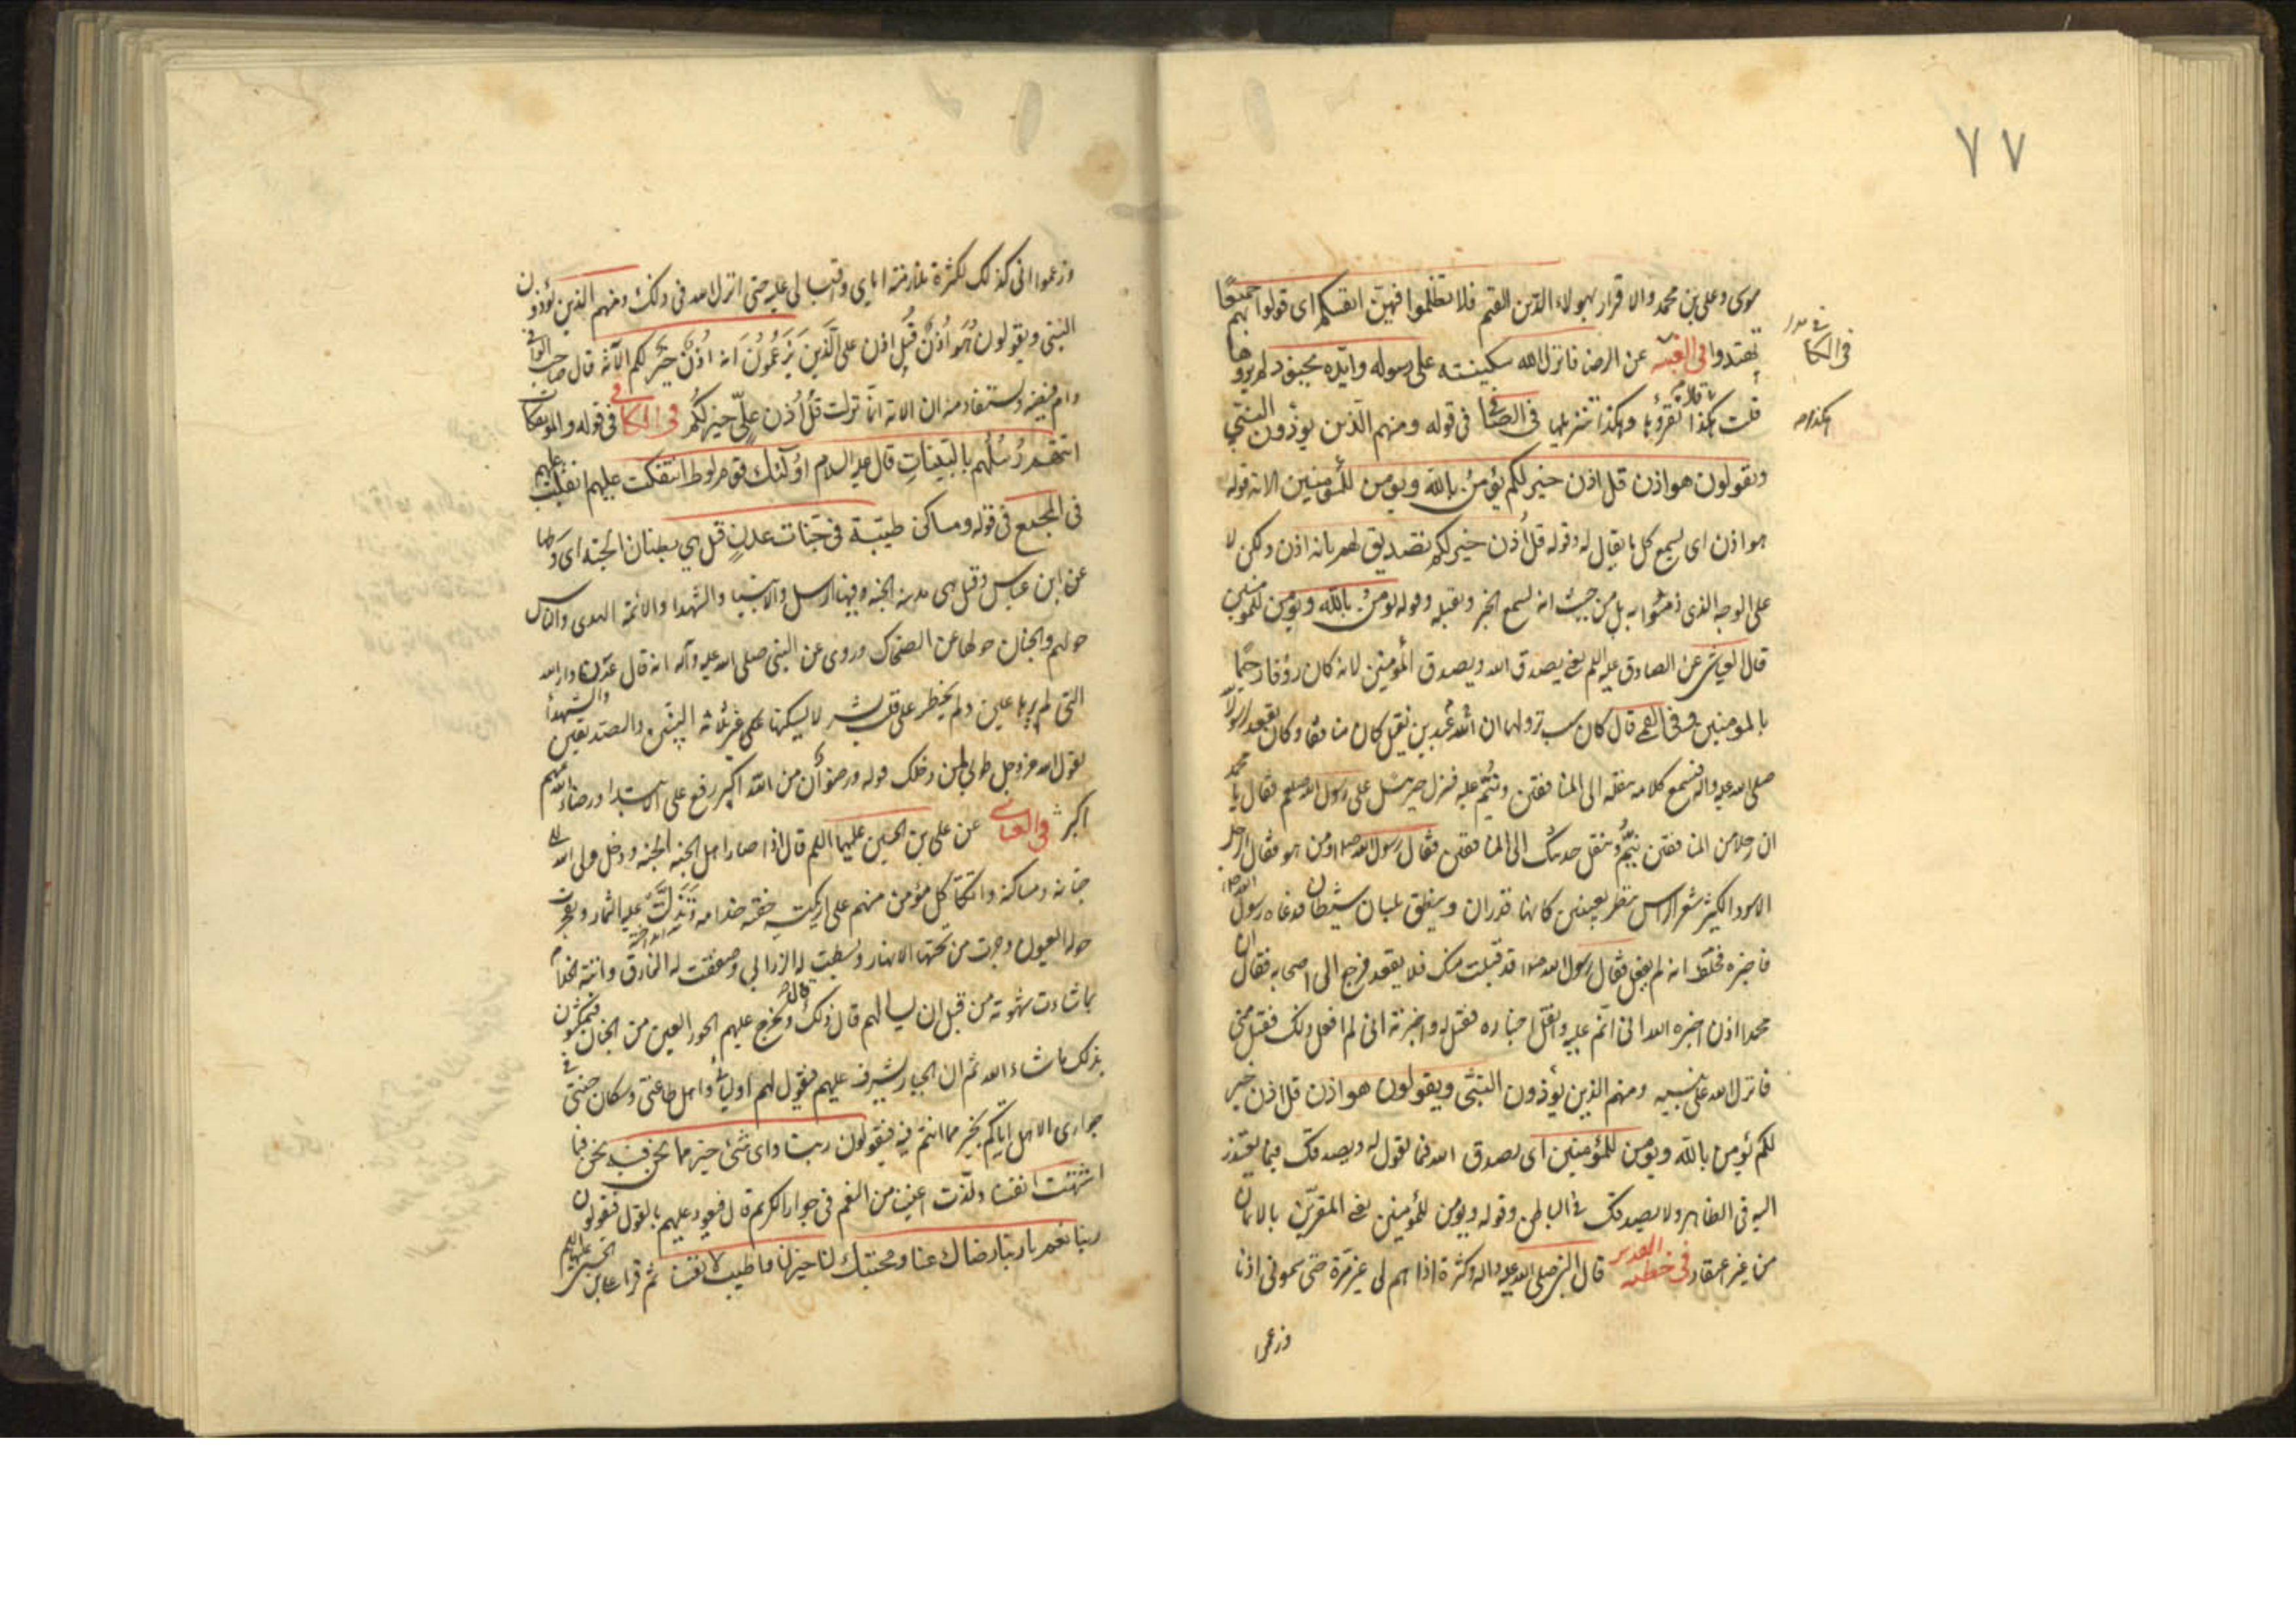 ٧٧
موسى وعلى بن محمد والاقرار بهولاء الدين القيم فلا تظلموا فيهن انفسكم اى قولوا بهم جميعًا
تهتدوا فى العيّاشى عن الرضا فانزل الله سكينته على رسوله وايّده بجنود لم تروها
فى الكا
قلت هكذا نقرؤها وهكذا تنزيلها فى الصّافى فى قوله ومنهم الّذين يؤذون النبىّ
هكذا
ويقولون هو اذن قل اذن خير لكم يؤمن بالله ويؤمن للمؤمنين الاية قوله
هو اذن اى يسمع كل ما يقال له وقوله قل اُذن خير لكم تصديق لهم بانه اذن ولكن لا
على الوجه الذى ذمّوا به بل من حيث انه يسمع الخير ويقبله وقوله يؤمن بالله ويؤمن للمؤمنين
قال العياشى عن الصادق عليه السلم يعنى يصدق الله ويصدق المؤمنين لانه كان رؤفا رحيمًا
بالمؤمنين وفى القمى قال كان سبب نزولها ان عبد الله بن نفيل كان منافقا وكان يقعد لرسول الله
صلى الله عليه واله فيسمع كلامه ينقله الى المنافقين وينم عليه فنزل جبرئيل على رسول الله صلعم فقال يا محمد
ان رجلا من المنافقين ينمّ وينقل حديثك الى المنافقين فقال رسول الله ص من هو فقال الرجل
الاسود الكثير شعر الراس ينظر بعينين كانهما قدران وينطق بلسان شيطان فدعاه رسول الله ص
فاخبره فحلف انه لم يفعل فقال رسول الله ص قد قبلت منك فلا تقعد فرجع الى اصحابه فقال ان
محمدا اذن اخبره الله انى انمّ عليه وانقل اخباره فقبله واخبرته انى لم افعل ذلك فقبل منى
فانزل الله على نبيه ومنهم الذين يؤذون النبىّ ويقولون هو اذن قل اذن خير
لكم يؤمن بالله ويؤمن للمؤمنين اى يصدق الله فيما يقول له ويصدقك فيما يعتذر
اليه فى الظاهر ولا يصدقك فى الباطن وقوله ويؤمن للمؤمنين يعنى المقرّين بالايمان
من غير اعتقاد فى خطبه الغدير قال النبى صلى الله عليه واله وكثرة اذاهم لى غير مرّة حتى سمونى اذنا
وزعموا
وزعموا انى كذلك لكثرة ملازمته اياى واقبالى عليه حتى انزل الله فى ذلك ومنهم الذين يؤذون
النبى ويقولون هُو اُذن قُل اذن على الَّذين يَزعُمُونَ انه اُذن خير لكم الآية قال صاحب الوافى
ويستفاد منه ان الاية انّما نزلت قُل اُذن علىّ خير لكُم فى الكافى فى قوله والمؤتفكات
اتتهم رُسُلُهم بالبَيّنات قال عليه السلام اولئك قوم لوط ائتفكت عليهم انقلبت عليهم
فى المجمع فى قوله ومساكن طيّبة فى جنّات عدنٍ قيل هى بطنان الجنه اى وسطها
عن ابن عباس وقيل هى مدينة الجنه وفيها الرسل والانبيا والشهدا والائمة الهدى والناس
حولهم والجنان حولها عن الضحاك وروى عن النبى صلى الله عليه وآله انه قال عَدن دار الله
التى لم يرها عين ولم يخطر على قلب بشر لا يسكنها غير ثلاثة النبيّين والصديقين والشهدا
يقول الله عز وجل طوبى لمن دخلك قوله ورضوان من الله اكبر رفع على الابتدا ورضاء الله عنهم
اكبر فى العياشى عن على بن الحسين عليهما السلم قال اذا صار اهل الجنه الجنه ودخل ولى الله الى
جنانه ومساكنه واتّكأ كل مؤمن منهم على اريكته حفّته خدامه وتَدَلَّت عليه الثمار وتفجرت
حوله العيون وجرت من تحتها الانهار وبسطت له الزرابى وصففت له النمارق واتته الخدّام
بما شاءت شهوته من قبل ان يسالهم ذلك قال ويخرج عليهم الحور العين من الجنان فيمكثون
بذلك ما شاء الله ثم ان الجبار يشرف عليهم فيقول لهم اوليائى واهل طاعتى وسكان جنتى فى
جوارى الا هل انبّئكم بخير مما انتم فيه فيقولون ربنا واى شئ خير مما نحن فيه نحن فيما
اشتهت انفسنا ولذّت اعيننا من النعم فى جوار الكريم قال فيعود عليهم بالقول فيقولون
ربنا نعم يا ربنا رضاك عنا ومحبتك لنا خير لنا واطيب لانفسنا ثم قرا على بن الحسين عليهما السلم